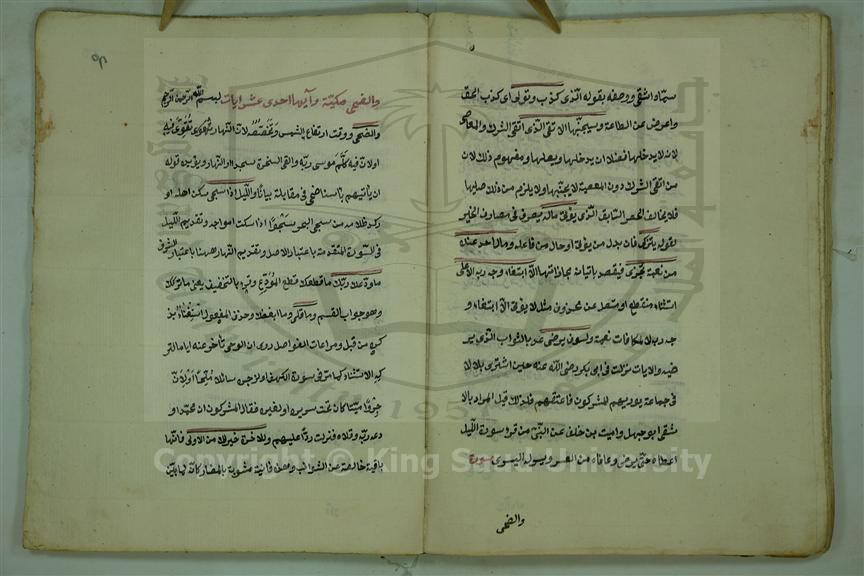 سماه اشقى ووصفه بقوله الذى كذب وتولى اى كذب الحق
واعرض عن الطاعة وسيجنبها الاتقى الذى اتقى الشرك والمعاصى
لان لا يدخلها فضلا ان يدخلها ويصلها ومفهوم ذلك لان
من اتقى الشرك دون المعصية لا يجتنبها ولا يلزم من ذلك صليها
فلا يخالف الحصر السابق الذى يؤتى ماله يصرف فى مصارف الخير
لقوله يتزكى فان بدل من يؤتى اوحال من فاعله وما لاحد عنده
من نعمة تجزى فيقصد باتيان مجازاتها الا ابتغاء وجه ربه الاعلى
استثناء منقطع او متصل عن محذوف مثل لا يؤتى الا ابتغاء و
جه ربه لا لمكافات نعمة ولسوف يرضى وعد بالثواب الذى ير
ضيه والايات نزلت فى ابى بكر رضى الله عنه حين اشترى بلالا
فى جماعة يوذيهم المشركون فاعتقهم فلذلك قيل المراد بالا
شقى ابو جهل واميت بن خلف عن النبى من قرا سورة الليل
اعطاه حتى يرضى وعافاه من العسر ويسر له اليسرى سورة
والضحى
والضحى مكية وآيها احدى عشر ايات بسم الله الرحمن الرحيم
والضحى ووقت ارتفاع الشمس وتخصصه لان النهار يقوى فيه
اولان فيه كلم موسى ربه والقى السحرة سجدا او النهار ويؤيده قوله
ان ياتيهم باسنا ضحى فى مقابلة بياتا والليل اذا سجى سكن اهله او
ركد ظلامه من سجى البحر سجوا اذا سكت امواجه وتقديم الليل
فى السورة المتقدمة باعتبار الاصل وتقديم النهار ههنا باعتبار الشرف
ما ودعك ربك ما قطعك قطع المودع وقرء بالتخفيف يعنى ما تركك
وهو جواب القسم وما قلى وما ابغضك وحذف المفعول استغناء بذ
كره من قبل ومراعات للفواصل روى ان الوحى تاخر عنه اياما لتر
كه الاستثناء كما مر فى سورة الكهف اولزجره سائلا ملحا اولان
جروا ميتا كان تحت سريره اولغيره فقال المشركون ان محمدا و
دعه ربه وقلاه فنزلت ردا عليهم وللاخرة خير لك من الاولى فانها
باقية خالصة عن الشوائب وهذه فانية مشوبة بالمضار كانه لما بين
Copyright © King Saud University
1957